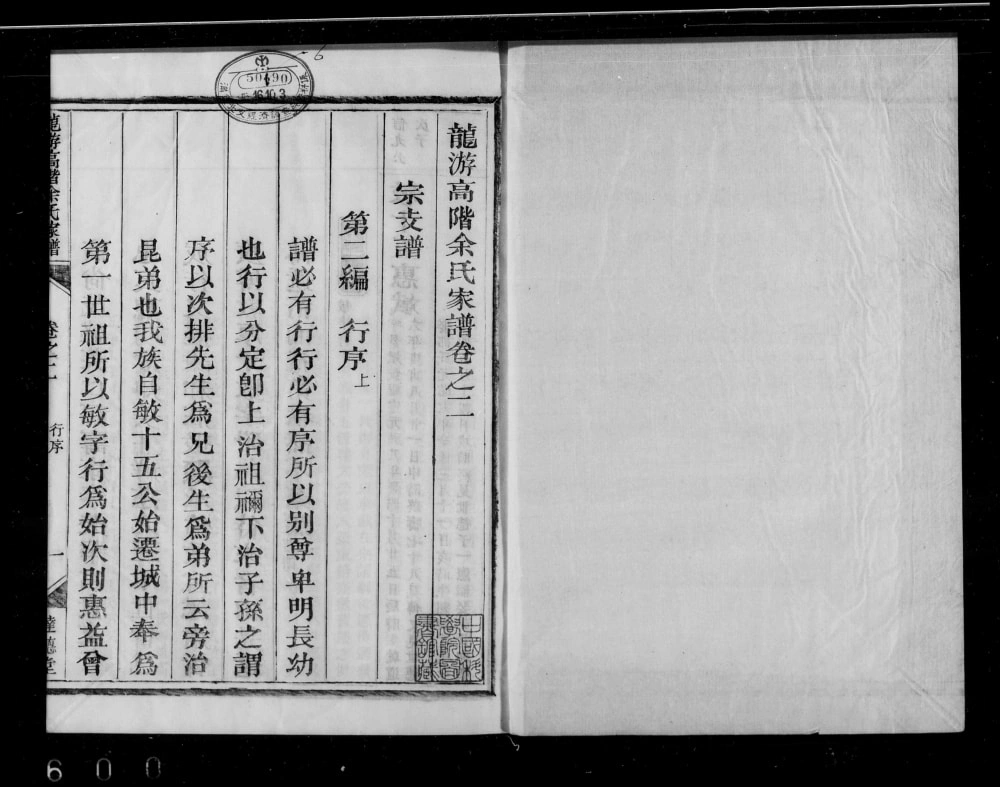 龍游高階余氏家譜卷之二
宗支譜
第二編 行序上
譜必有行行必有序所以別尊卑明長幼
也行以分定卽上治祖禰下治子孫之謂
序以次排先生爲兄後生爲弟所云旁治
昆弟也我族自敏十五公始遷城中奉爲
第一世祖所以敏字行爲始次則惠益曾
龍游高階余氏家譜 卷之二 行序 一 達德堂
50490
16.10.3
中國科
學院圖
書館藏
6
600